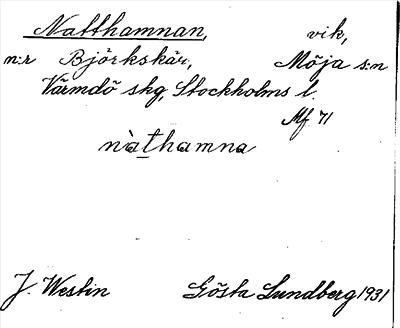 Natthamnan, vik,
n:r Björkskär, Möja s:n
Värmdö skg, Stockholms l.
Mf 71
nàt̲hamna
J. Westin Gösta Lundberg 1931